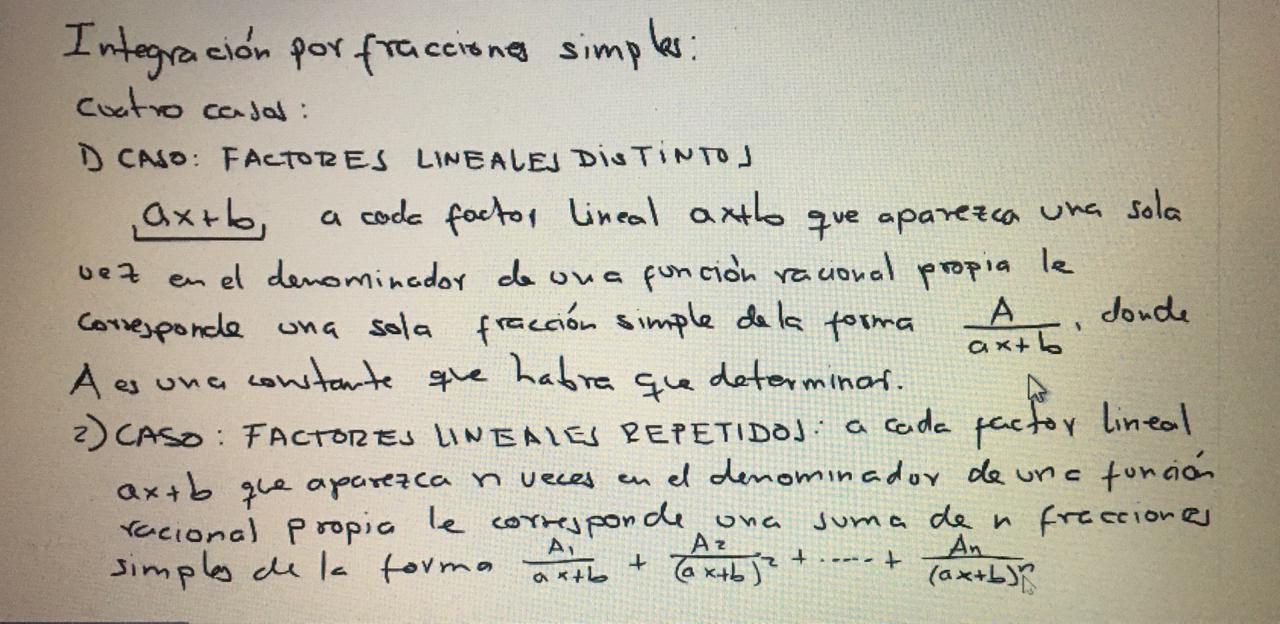 Integración por fracciones simples:
Cuatro casos:
1) CASO: FACTORES LINEALES DISTINTOS
ax+b, a cada factor lineal ax+b que aparezca una sola
vez en el denominador de una función racional propia le
corresponde una sola fracción simple de la forma A/(ax+b), donde
A es una constante que habra que determinar.
2) CASO: FACTORES LINEALES REPETIDOS: a cada factor lineal
ax+b que aparezca n veces en el denominador de una función
racional propia le corresponde una suma de n fracciones
simples de la forma A₁/(ax+b) + A₂/(ax+b)² + ..... + Aₙ/(ax+b)ⁿ